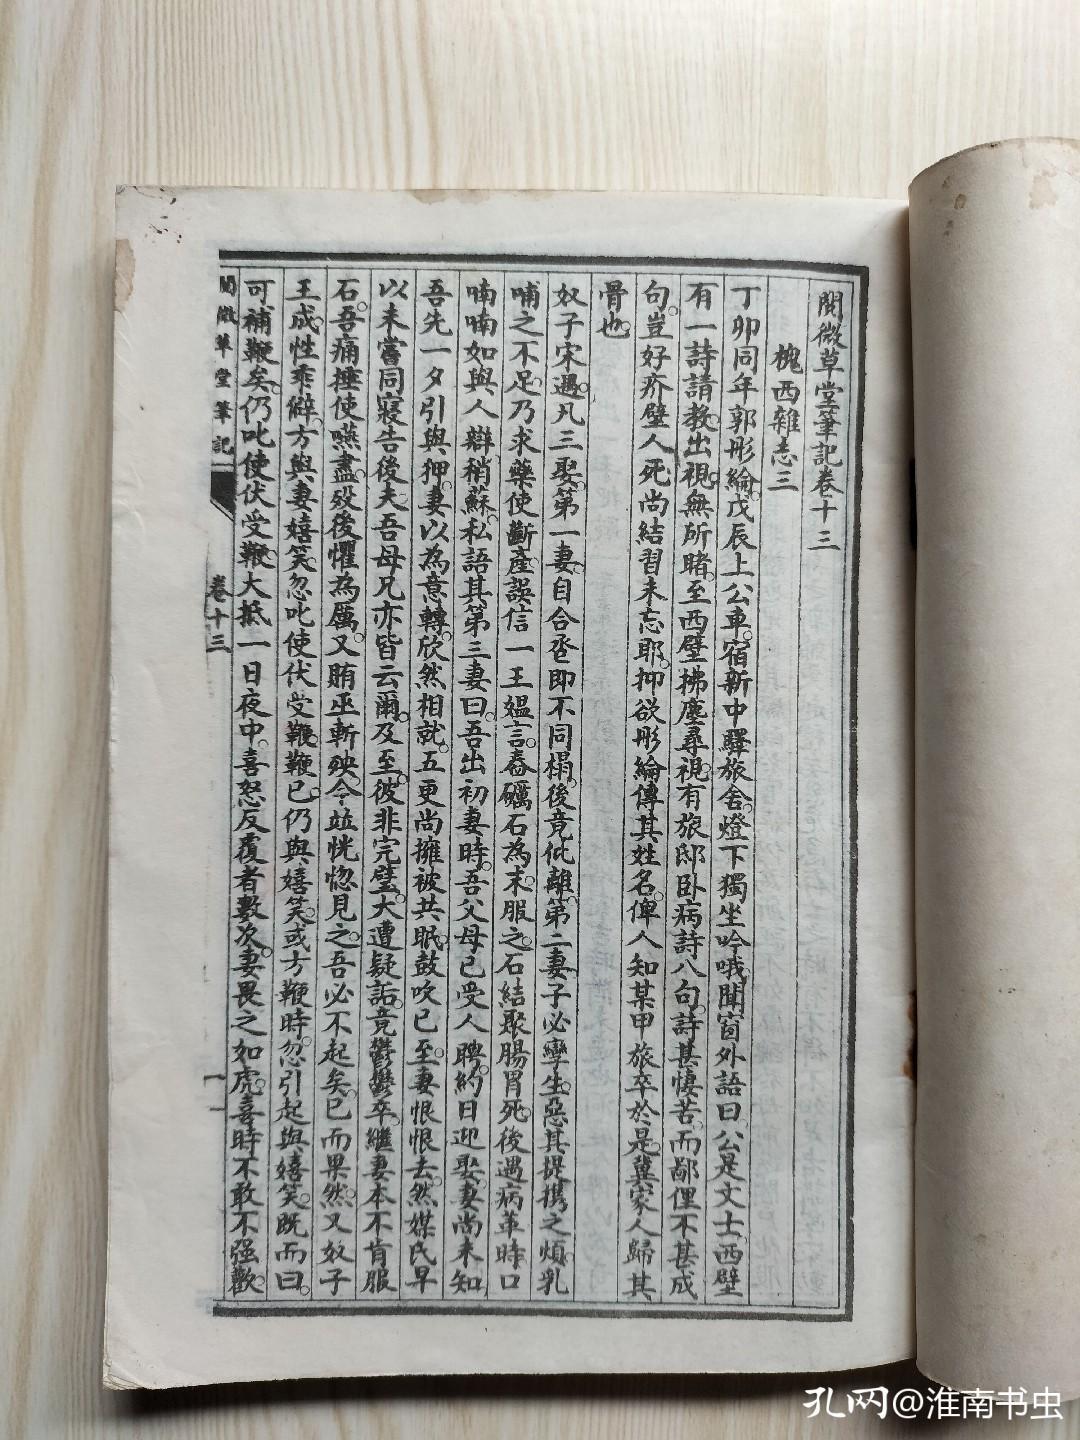 閱微草堂筆記卷十三
槐西雜志三
丁卯同年郭彤綸。戊辰上公車。宿新中驛旅舍。燈下獨坐吟哦。聞窗外語曰。公是文士。西壁
有一詩請教。出視。無所睹。至西壁拂塵尋視。有旅邸臥病詩八句。詩甚悽苦。而鄙俚不甚成
句。豈好疥壁人死尚結習未忘耶。抑欲彤綸傳其姓名。俾人知某甲旅卒於是。冀家人歸其
骨也。
奴子宋遇凡三娶。第一妻自合巹即不同榻。後竟仳離。第二妻子必孿生。惡其提攜之煩。乳
哺之不足。乃求藥使斷產。誤信一王媼言。舂礪石為末服之。石結聚腸胃死。後遇病革時。口
喃喃如與人辯。稍蘇。私語其第三妻曰。吾出初妻時。吾父母已受人聘。約日迎娶。妻尚未知
吾先一夕引與狎。妻以為意轉。欣然相就。五更尚擁被共眠。鼓吹已至。妻恨恨去。然媒氏早
以未嘗同寢告後夫。吾母兄亦皆云爾。及至彼。非完璧。大遭疑詬。竟鬱鬱卒。繼妻本不肯服
石。吾痛捶使嚥盡。歿後懼為厲。又賄巫斬殃。今竝恍惚見之。吾必不起矣。已而果然。又奴子
王成性乖僻。方與妻嬉笑。忽叱使伏受鞭。鞭已。仍與嬉笑。或方鞭時。忽引起與嬉笑。既而曰。
可補鞭矣。仍叱使伏受鞭。大抵一日夜中。喜怒反覆者數次。妻畏之如虎。喜時不敢不强歡。
閱微草堂筆記
卷十三
一
孔网@淮南书虫